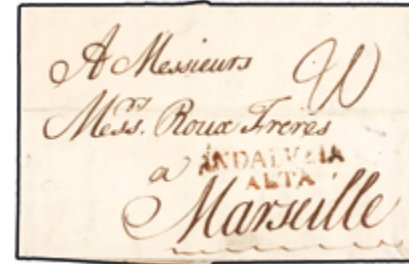 A Messieurs
Mess.rs Roux Freres
a ANDALUZIA
ALTA
Marseille